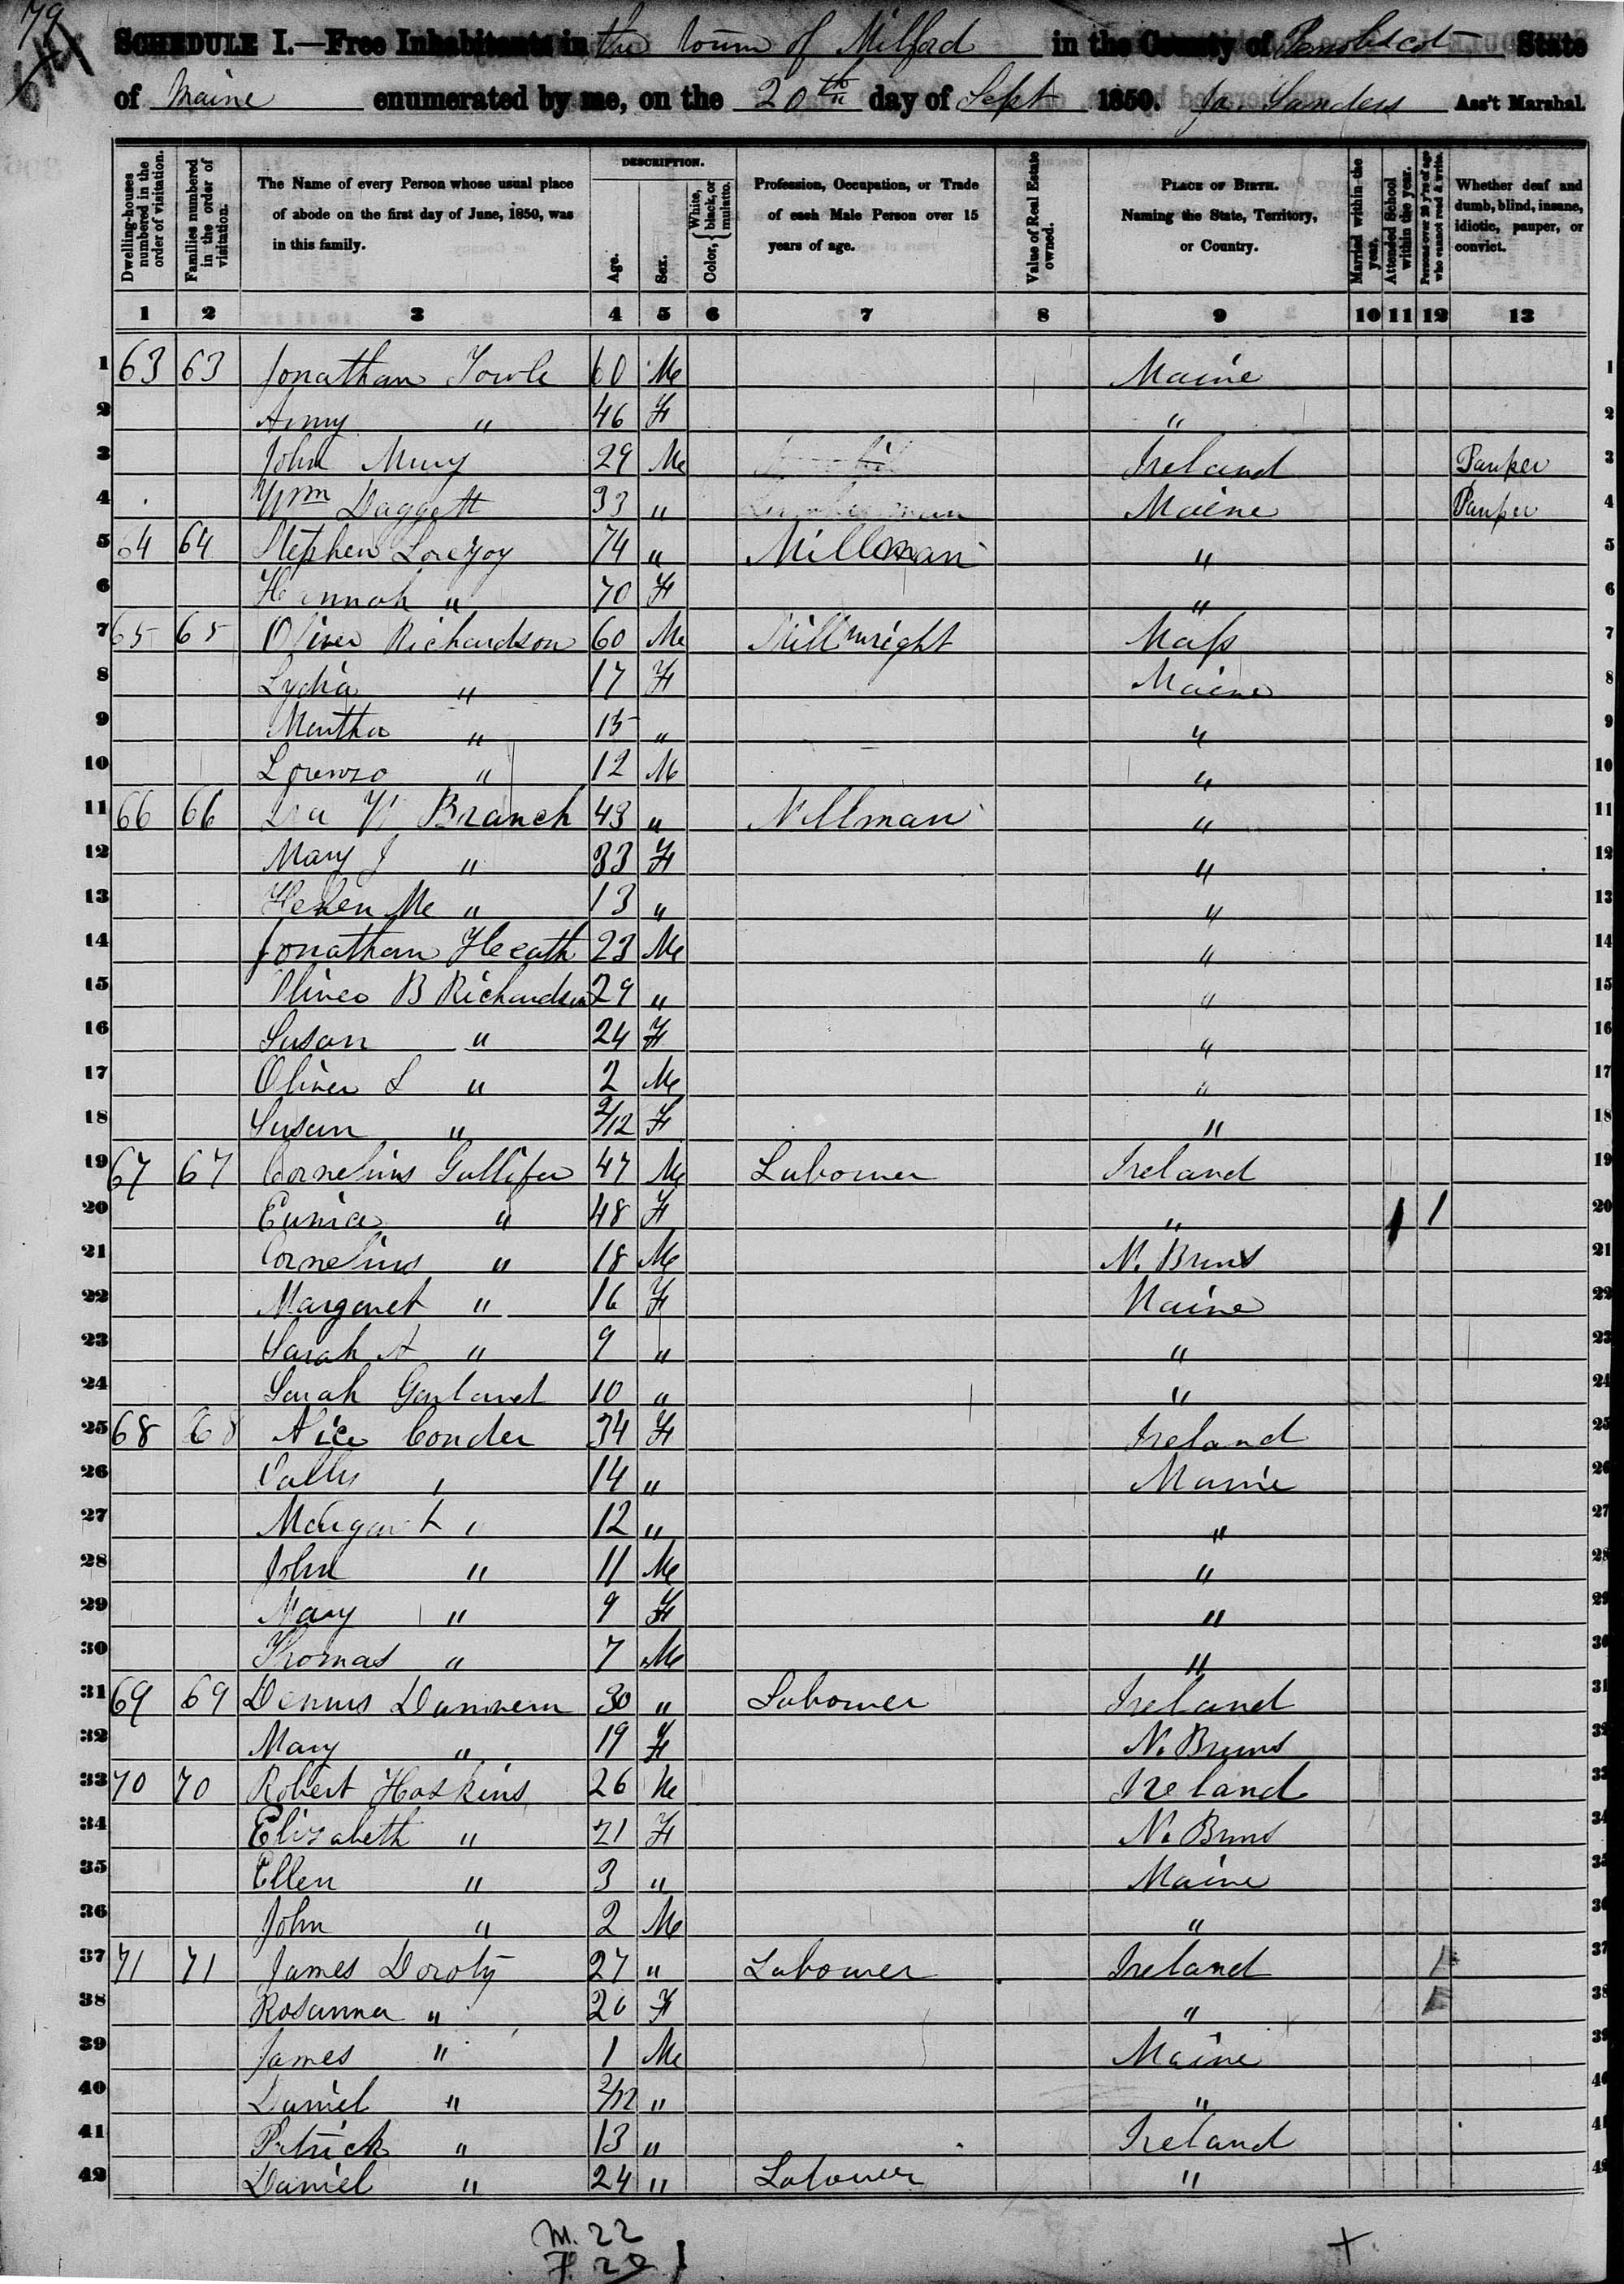 79
SCHEDULE I.—Free Inhabitants in the Town of Milford in the County of Penobscot State
of Maine enumerated by me, on the 20th day of Sept 1850. Jn. Sanders Ass't Marshal.
Dwelling-houses numbered in the order of visitation.
Families numbered in the order of visitation.
The Name of every Person whose usual place of abode on the first day of June, 1850, was in this family.
DESCRIPTION.
Age.
Sex.
Color, { White, black, or mulatto.
Profession, Occupation, or Trade of each Male Person over 15 years of age.
Value of Real Estate owned.
PLACE OF BIRTH. Naming the State, Territory, or Country.
Married within the year.
Attended School within the year.
Persons over 20 y'rs of age who cannot read & write.
Whether deaf and dumb, blind, insane, idiotic, pauper, or convict.
1 2 3 4 5 6 7 8 9 10 11 12 13
1 63 63 Jonathan Towle 60 M Maine 1
2 Amy " 46 F " 2
3 John Mury 29 M Ireland Pauper 3
4 Wm Daggett 33 " Lumberman Maine Pauper 4
5 64 64 Stephen Lovejoy 74 " Millman " 5
6 Hannah " 70 F " 6
7 65 65 Oliver Richardson 60 M Millwright Mass 7
8 Lydia " 17 F Maine 8
9 Martha " 15 " " 9
10 Lorenzo " 12 M " 10
11 66 66 Ira W Branch 43 " Millman " 11
12 Mary J " 33 F " 12
13 Helen M " 13 " " 13
14 Jonathan Heath 23 M " 14
15 Oliver B Richardson 29 " " 15
16 Susan " 24 F " 16
17 Oliver L " 2 M " 17
18 Susan " 2/12 F " 18
19 67 67 Cornelius Gullifer 47 M Labourer Ireland 19
20 Eunice " 48 F " 1 1 20
21 Cornelius " 18 M N. Bruns 21
22 Margaret " 16 F Maine 22
23 Sarah A " 9 " " 23
24 Sarah Garland 10 " " 24
25 68 68 Alice Conder 34 F Ireland 25
26 " 14 " Maine 26
27 Margaret " 12 " " 27
28 John " 11 M " 28
29 Mary " 9 F " 29
30 Thomas " 7 M " 30
31 69 69 Dennis 30 " Labourer Ireland 31
32 Mary " 19 F N. Bruns 32
33 70 70 Robert Hoskins 26 M Ireland 33
34 Elizabeth " 21 F N. Bruns 34
35 Ellen " 3 " Maine 35
36 John " 2 M " 36
37 71 71 James Doroty 27 " Labourer Ireland 1 37
38 Rosanna " 20 F " 1 38
39 James " 1 M Maine 39
40 Daniel " 2/12 " " 40
41 Patrick " 13 " Ireland 41
42 Daniel " 24 " Labourer " 42
M. 22
F. 20 }
+